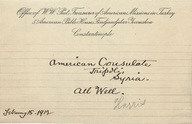 Office of W. W. Peet, Treasurer of American Missions in Turkey
American Bible House
Constantinople
American Consulate
Tripoli
Syria.
All Well.
February 15-1912